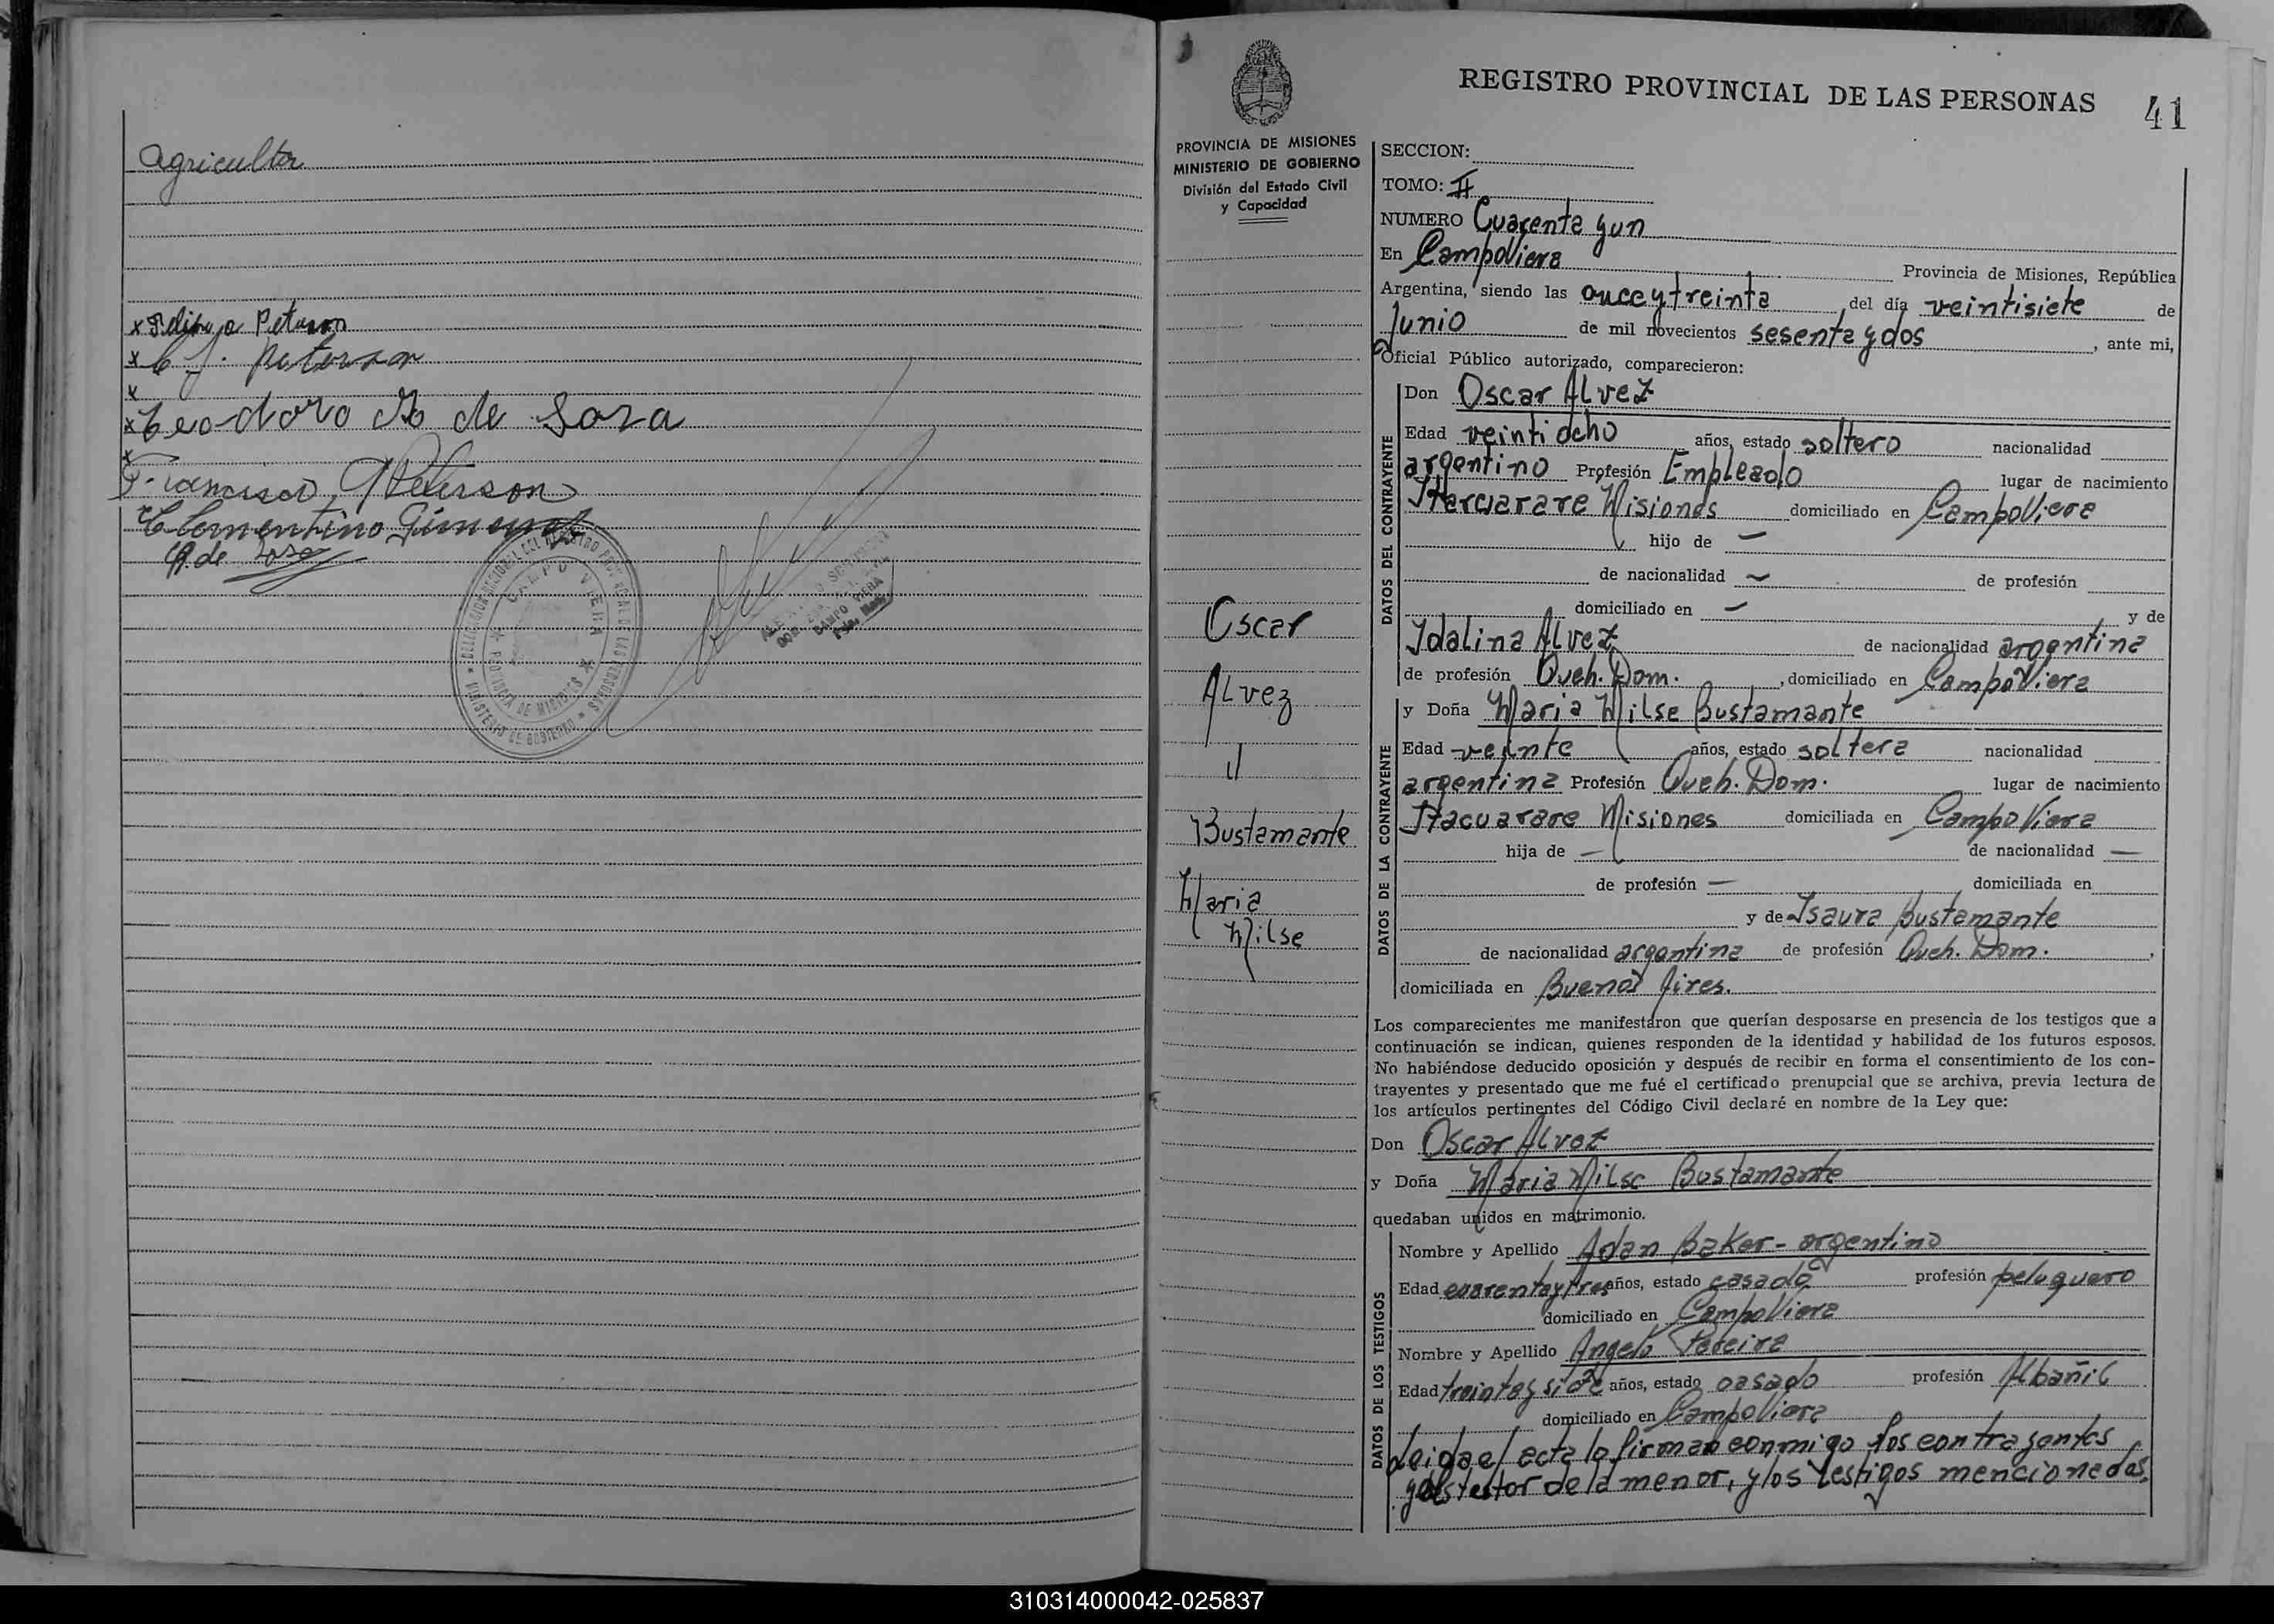 Agricultor
x Felipa Peterson
x C. J. Peterson
x
x Teodoro R. de Sosa
x
Francisco G Peterson
Clementino Gimenez
R. de Sosa
DELEGACION DEL REGISTRO PROVINCIAL DE LAS PERSONAS
CAMPO VIERA
PROVINCIA DE MISIONES
MINISTERIO DE GOBIERNO
CAMPO VIERA
REGISTRO PROVINCIAL DE LAS PERSONAS 41
PROVINCIA DE MISIONES
MINISTERIO DE GOBIERNO
División del Estado Civil
y Capacidad
Oscar
Alvez
"
Bustamante
Maria
Nilse
SECCION:
TOMO: II
NUMERO Cuarenta y un
En Campo Viera Provincia de Misiones, República
Argentina, siendo las once y treinta del día veintisiete de
Junio de mil novecientos sesenta y dos, ante mi,
Oficial Público autorizado, comparecieron:
DATOS DEL CONTRAYENTE
Don Oscar Alvez
Edad veintiocho años, estado soltero nacionalidad
argentino Profesión Empleado lugar de nacimiento
Misiones domiciliado en Campo Viera
hijo de —
de nacionalidad — de profesión
domiciliado en — y de
Idalina Alvez de nacionalidad argentina
de profesión Queh. Dom., domiciliado en Campo Viera
DATOS DE LA CONTRAYENTE
y Doña Maria Nilse Bustamante
Edad veinte años, estado soltera nacionalidad
argentina Profesión Queh. Dom. lugar de nacimiento
Itacuarare Misiones domiciliada en Campo Viera
hija de — de nacionalidad —
de profesión — domiciliada en
y de Isaura Bustamante
de nacionalidad argentina de profesión Queh. Dom.,
domiciliada en Buenos Aires.
Los comparecientes me manifestaron que querían desposarse en presencia de los testigos que a
continuación se indican, quienes responden de la identidad y habilidad de los futuros esposos.
No habiéndose deducido oposición y después de recibir en forma el consentimiento de los con-
trayentes y presentado que me fué el certificado prenupcial que se archiva, previa lectura de
los artículos pertinentes del Código Civil declaré en nombre de la Ley que:
Don Oscar Alvez
y Doña Maria Nilse Bustamante
quedaban unidos en matrimonio.
DATOS DE LOS TESTIGOS
Nombre y Apellido Adan Baker - argentino
Edad cuarenta y tres años, estado casado profesión peluquero
domiciliado en Campo Viera
Nombre y Apellido Angelo Pereira
Edad treinta y siete años, estado casado profesión Albañil
domiciliado en Campo Viera
leida el acta la firman conmigo los contrayentes
de la menor, y los testigos mencionados
310314000042-025837